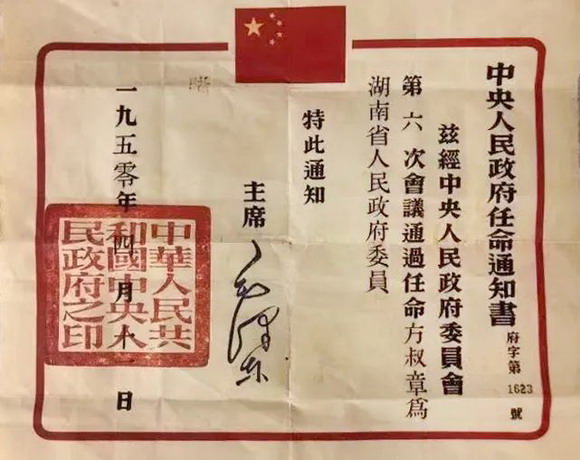 中央人民政府任命通知書
府字第1623號
兹經中央人民政府委員會
第六次會議通過任命方叔章爲
湖南省人民政府委員
特此通知
主席 毛澤东
一九五零年四月 日
中華人民共
和國中央人
民政府之印